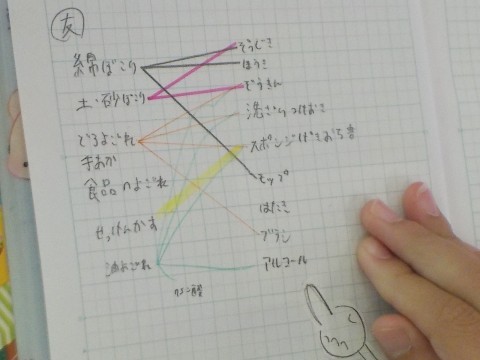 友
綿ぼこり
土・砂ぼこり
どろよごれ
手あか
食品のよごれ
せっけんかす
油よごれ
クエン酸
そうじき
ほうき
ぞうきん
スポンジ
モップ
はたき
ブラシ
アルコール